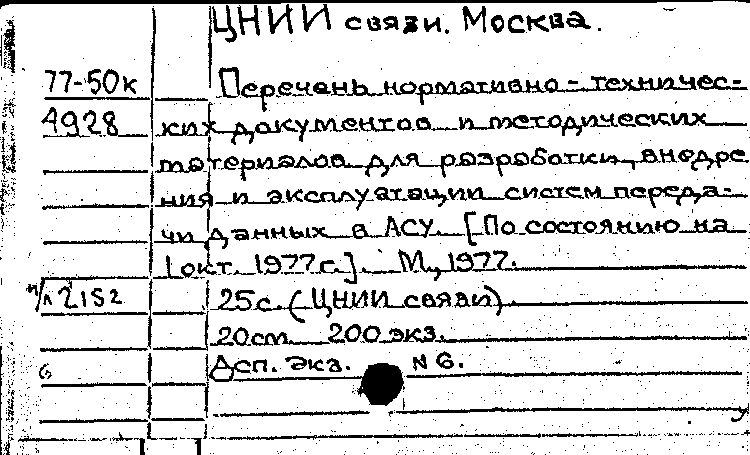 ЦНИИ связи. Москва.
77-50к Перечень нормативно-техничес-
4928 ких документов и методических
материалов для разработки, внедре
ния и эксплуатации систем переда-
чи данных в АСУ. [По состоянию на
1 окт. 1977г.]. М., 1977.
п/п 2152 25с. (ЦНИИ связи).
20см. 200 экз.
6 Дсп. Экз. N 6.